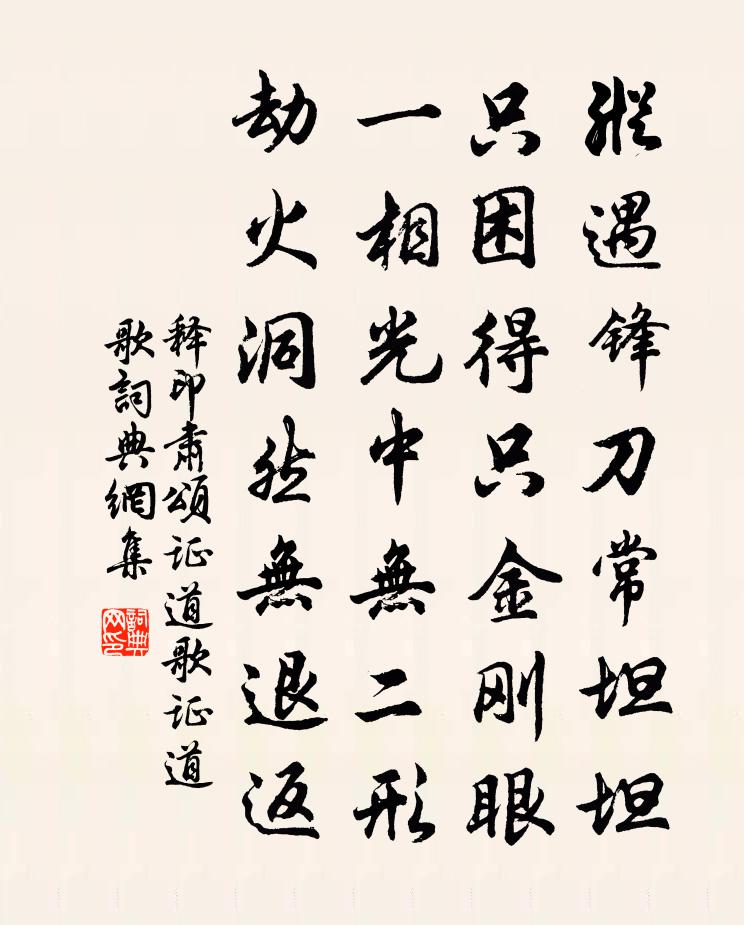 縱遇锋刀常坦坦
只困得只金刚眼
一相光中無二形
劫火洞然無退返
释印肅頌证道歌证道
歌詞典網集
詞典
网印